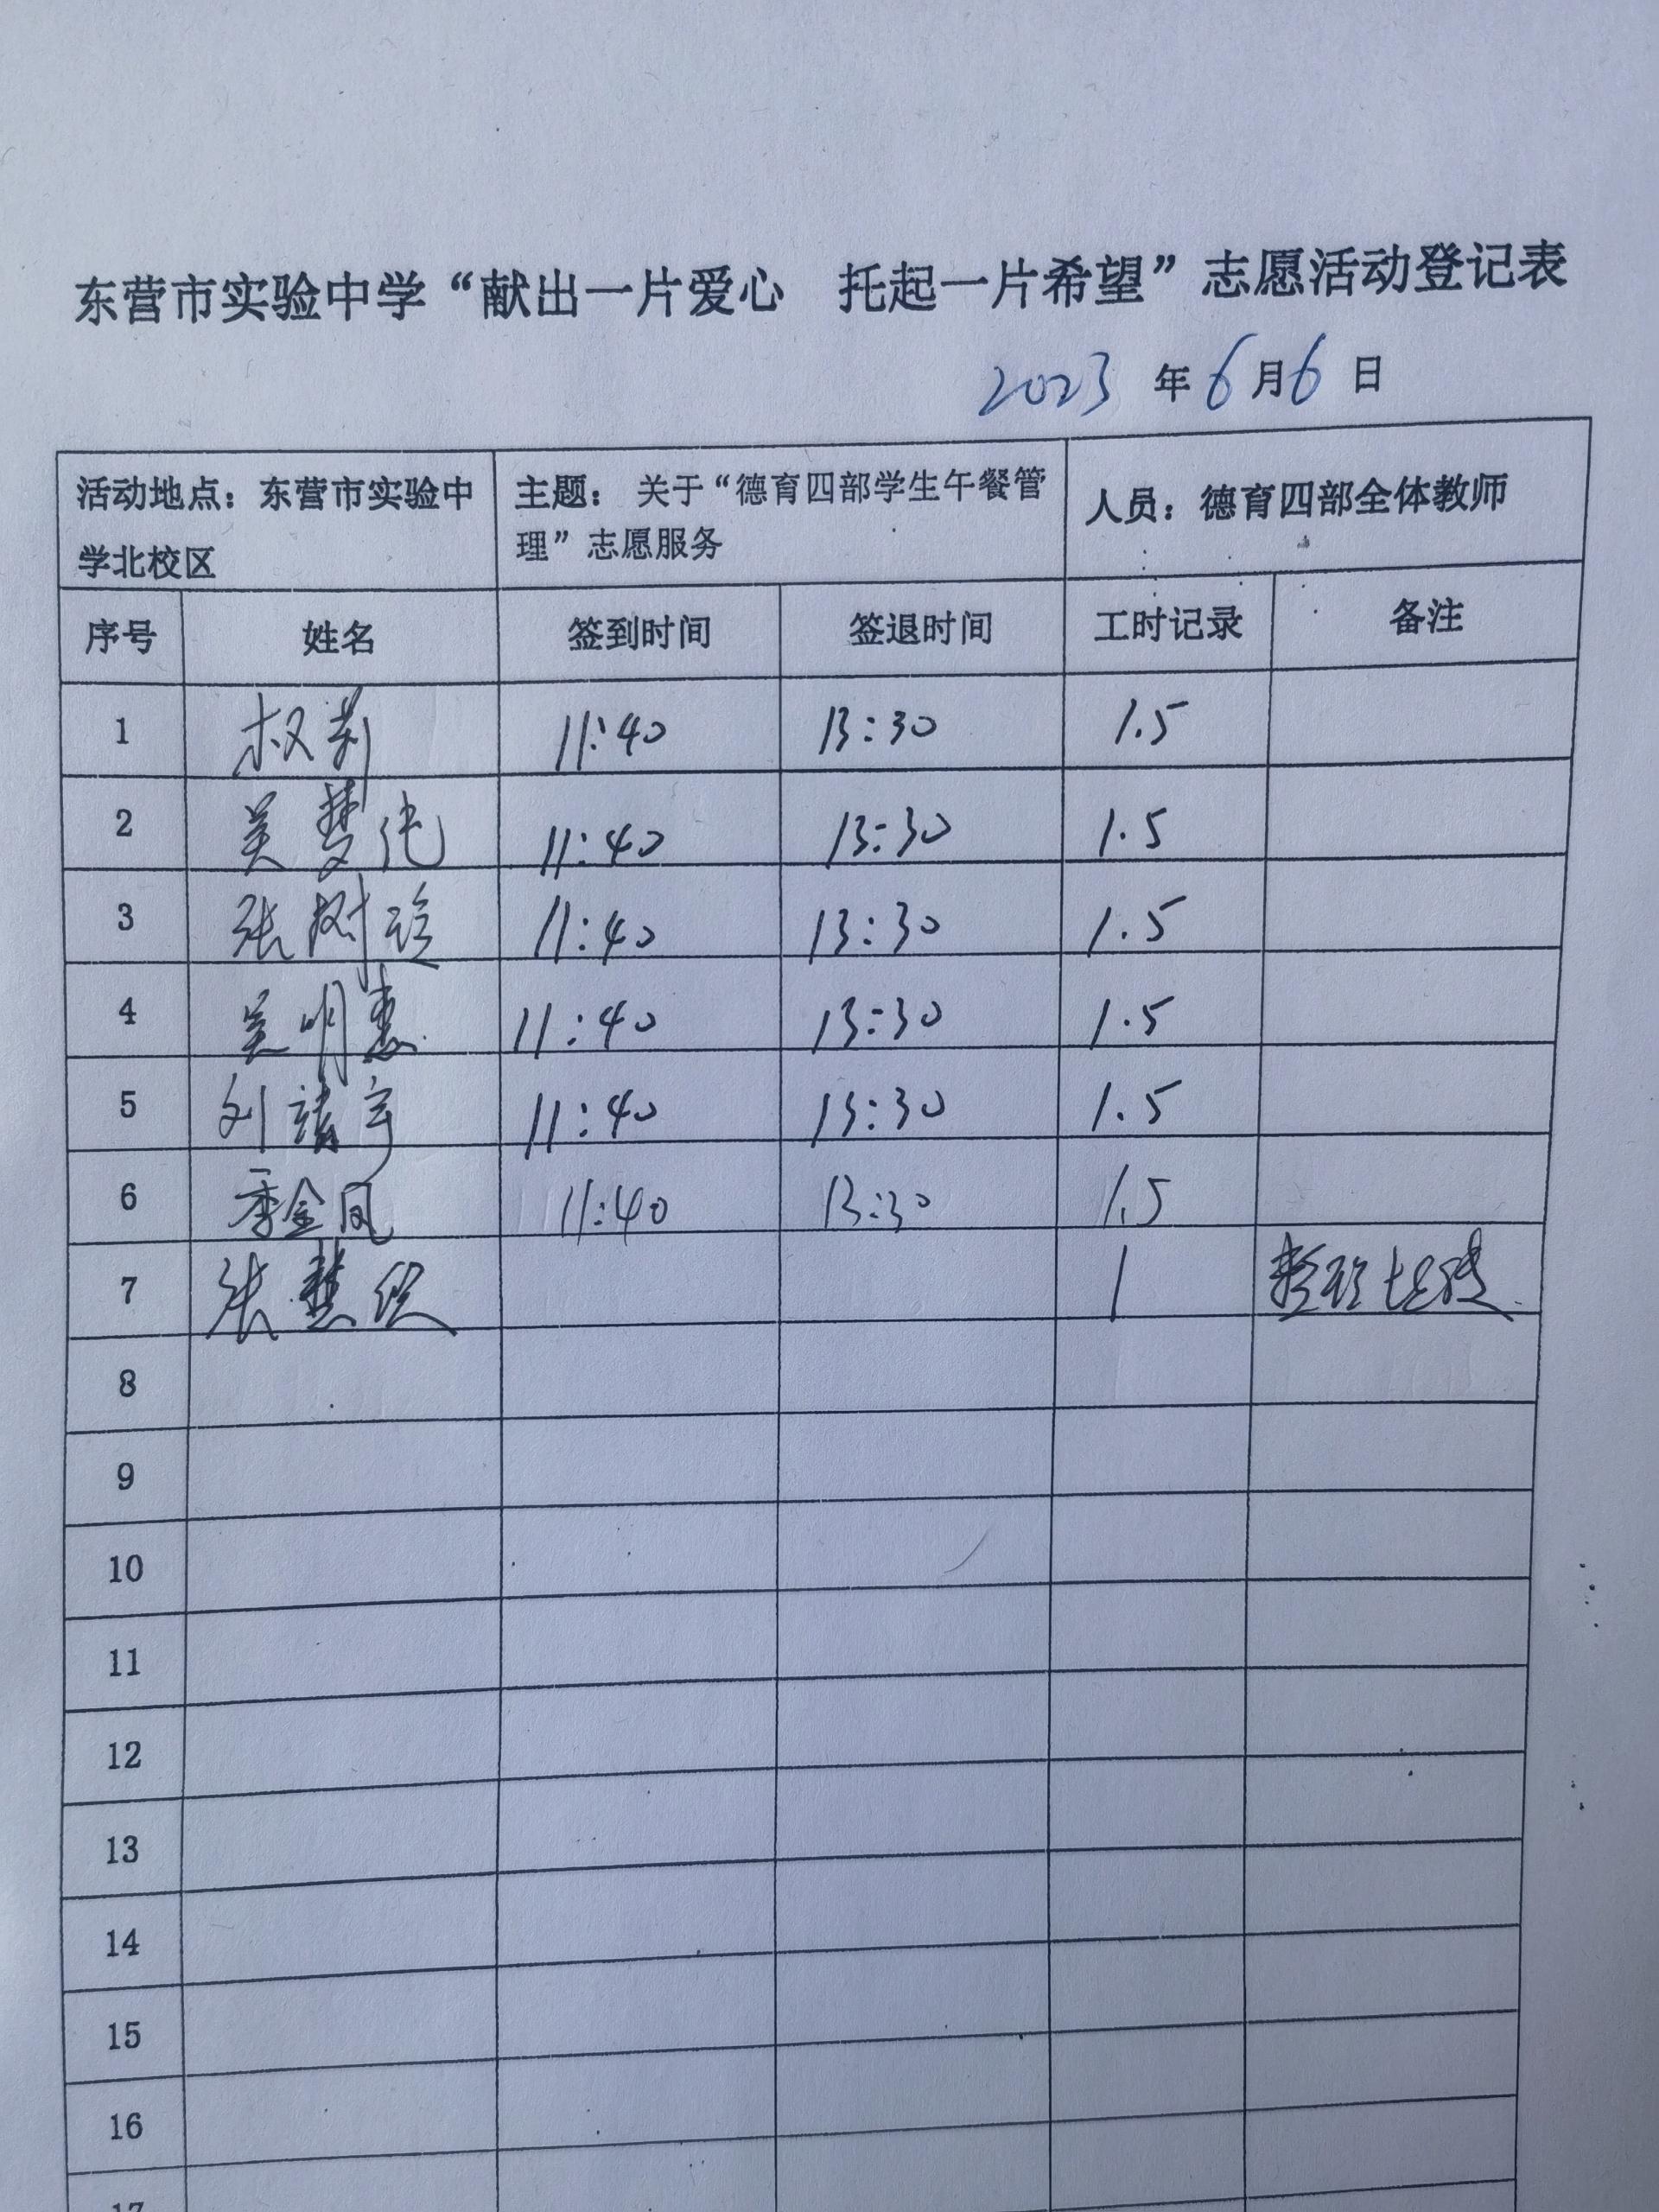 东营市实验中学“献出一片爱心 托起一片希望”志愿活动登记表
2023 年 6 月 6 日
活动地点：东营市实验中
学北校区
主题： 关于“德育四部学生午餐管
理”志愿服务
人员：德育四部全体教师
序号 姓名 签到时间 签退时间 工时记录 备注
1 权莉 11:40 13:30 1.5
2 吴梦 11:40 13:30 1.5
3 张树珍 11:40 13:30 1.5
4 吴明惠 11:40 13:30 1.5
5 刘靖宇 11:40 13:30 1.5
6 季金凤 11:40 13:30 1.5
7 张慧 1
8
9
10
11
12
13
14
15
16
17